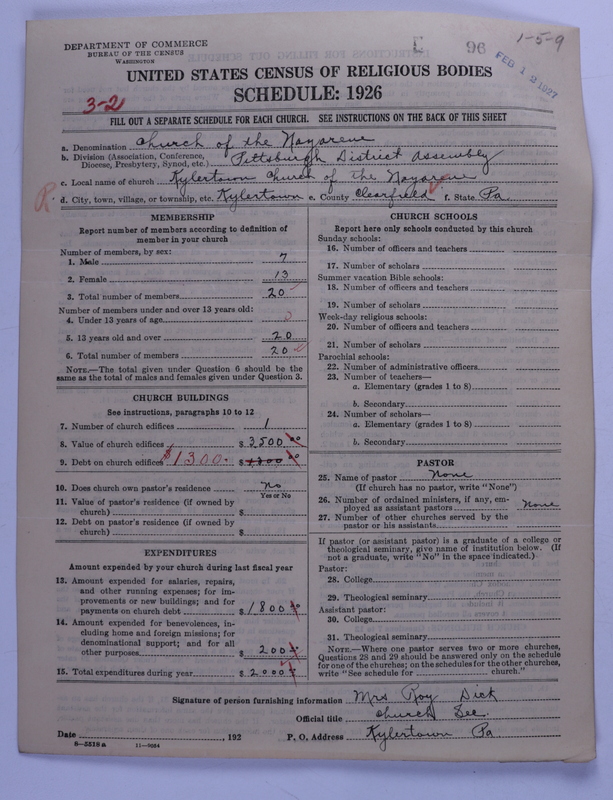 DEPARTMENT OF COMMERCE
BUREAU OF THE CENSUS
WASHINGTON
E 96
1-5-9
FEB 12 1927
UNITED STATES CENSUS OF RELIGIOUS BODIES
SCHEDULE: 1926
3-2
FILL OUT A SEPARATE SCHEDULE FOR EACH CHURCH. SEE INSTRUCTIONS ON THE BACK OF THIS SHEET
a. Denomination Church of the Nazarene
b. Division (Association, Conference, Diocese, Presbytery, Synod, etc.) Pittsburgh District Assembly
c. Local name of church Kylertown Church of the Nazarene
R
d. City, town, village, or township, etc. Kylertown e. County Clearfield f. State Pa.
MEMBERSHIP
Report number of members according to definition of
member in your church
Number of members, by sex:
1. Male 7
2. Female 13
3. Total number of members 20
Number of members under and over 13 years old:
4. Under 13 years of age
5. 13 years old and over 20
6. Total number of members 20
NOTE.—The total given under Question 6 should be
same as the total of males and females given under Question 3.
CHURCH BUILDINGS
See instructions, paragraphs 10 to 12
7. Number of church edifices 1
8. Value of church edifices $ 3500 00
9. Debt on church edifices $1300 $ 1300 00
10. Does church own pastor's residence No
Yes or No
11. Value of pastor's residence (if owned by
church) $
12. Debt on pastor's residence (if owned by
church) $
EXPENDITURES
Amount expended by your church during last fiscal year
13. Amount expended for salaries, repairs,
and other running expenses; for im-
provements or new buildings; and for
payments on church debt $ 1800
14. Amount expended for benevolences, in-
cluding home and foreign missions; for
denominational support; and for all
other purposes $ 200
15. Total expenditures during year $ 2000
CHURCH SCHOOLS
Report here only schools conducted by this church
Sunday schools:
16. Number of officers and teachers
17. Number of scholars
Summer vacation Bible schools:
18. Number of officers and teachers
19. Number of scholars
Week-day religious schools:
20. Number of officers and teachers
21. Number of scholars
Parochial schools:
22. Number of administrative officers
23. Number of teachers—
a. Elementary (grades 1 to 8)
b. Secondary
24. Number of scholars—
a. Elementary (grades 1 to 8)
b. Secondary
PASTOR
25. Name of pastor None
(If church has no pastor, write "None")
26. Number of ordained ministers, if any, em-
ployed as assistant pastors None
27. Number of other churches served by the
pastor or his assistants
If pastor (or assistant pastor) is a graduate of a college or
theological seminary, give name of institution below. (If
not a graduate, write "No" in the space indicated.)
Pastor:
28. College
29. Theological seminary
Assistant pastor:
30. College
31. Theological seminary
NOTE.—Where one pastor serves two or more churches,
Questions 28 and 29 should be answered only on the schedule
for one of the churches; on the schedules for the other churches,
write "See schedule for church."
Signature of person furnishing information Mrs Roy Dick
Official title Church Sec
Date , 192 P. O. Address Kylertown Pa
8—5518 a 11—9084